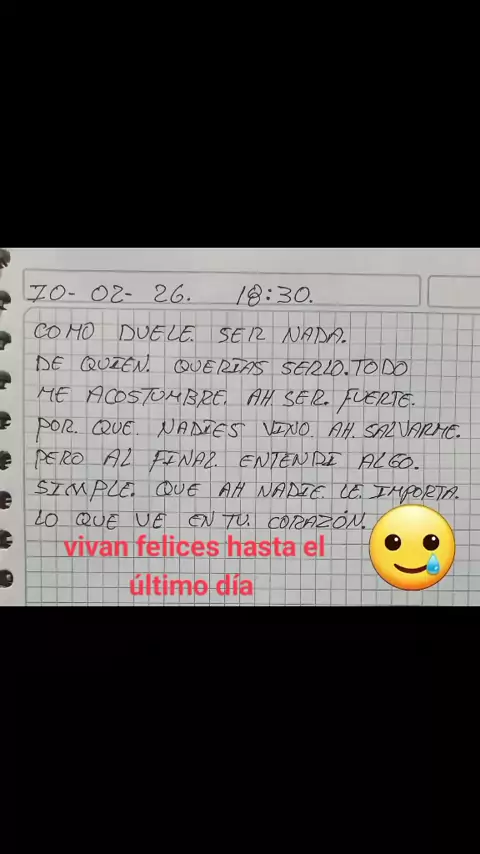 10-02-26. 18:30.
COMO DUELE. SER NADA.
DE QUIEN. QUERIAS SERLO. TODO
ME ACOSTUMBRE. AH SER. FUERTE.
POR. QUE. NADIES VINO. AH. SALVARME.
PERO AL FINAL ENTENDI ALGO.
SIMPLE. QUE AH NADIE. LE. IMPORTA.
LO QUE VE EN TU. CORAZÓN.
vivan felices hasta el
último día